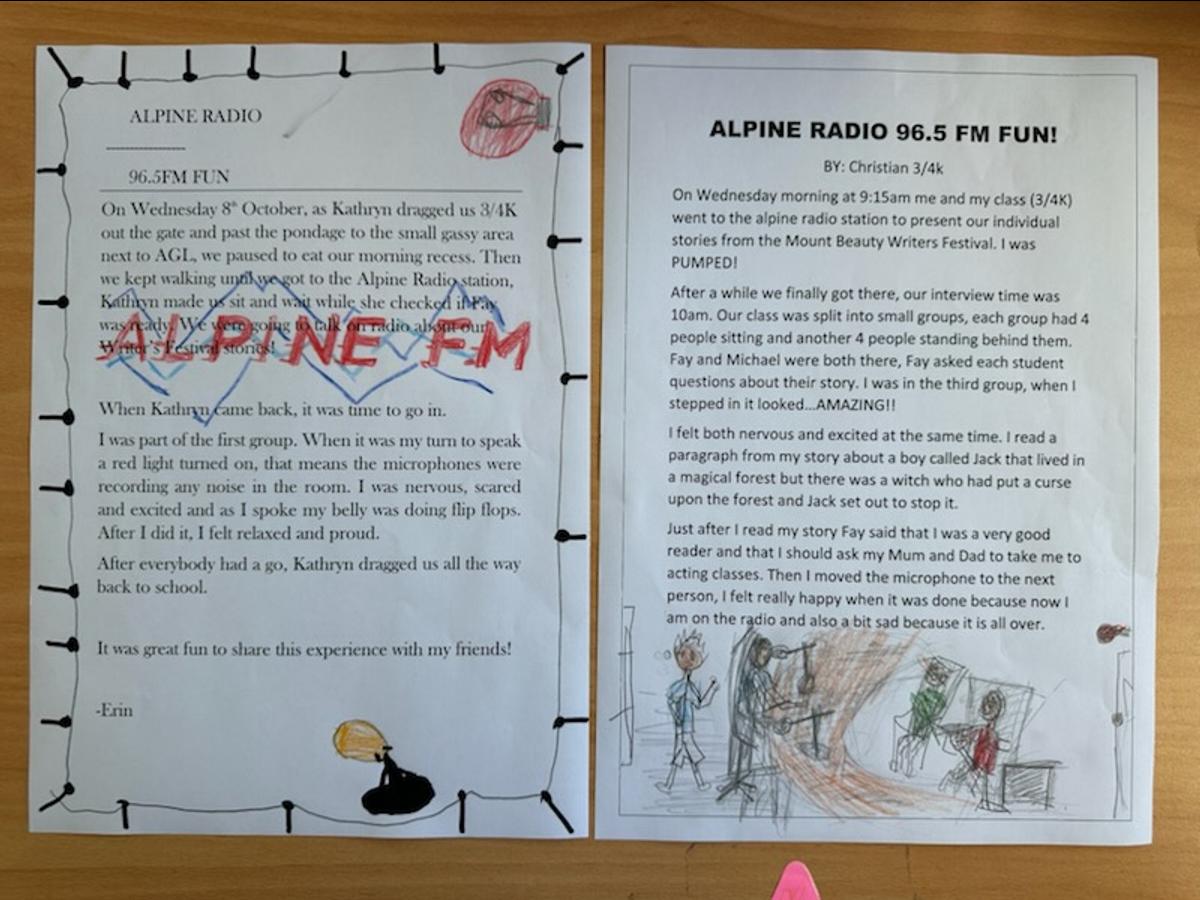 ALPINE RADIO
96.5FM FUN
On Wednesday 8th October, as Kathryn dragged us 3/4K
out the gate and past the pondage to the small gassy area
next to AGL, we paused to eat our morning recess. Then
we kept walking until we got to the Alpine Radio station,
Kathryn made us sit and wait while she checked if Fay
was ready. We were going to talk on radio about our
Writer's Festival stories!
ALPINE FM
When Kathryn came back, it was time to go in.
I was part of the first group. When it was my turn to speak
a red light turned on, that means the microphones were
recording any noise in the room. I was nervous, scared
and excited and as I spoke my belly was doing flip flops.
After I did it, I felt relaxed and proud.
After everybody had a go, Kathryn dragged us all the way
back to school.
It was great fun to share this experience with my friends!
-Erin
ALPINE RADIO 96.5 FM FUN!
BY: Christian 3/4k
On Wednesday morning at 9:15am me and my class (3/4K)
went to the alpine radio station to present our individual
stories from the Mount Beauty Writers Festival. I was
PUMPED!
After a while we finally got there, our interview time was
10am. Our class was split into small groups, each group had 4
people sitting and another 4 people standing behind them.
Fay and Michael were both there, Fay asked each student
questions about their story. I was in the third group, when I
stepped in it looked...AMAZING!!
I felt both nervous and excited at the same time. I read a
paragraph from my story about a boy called Jack that lived in
a magical forest but there was a witch who had put a curse
upon the forest and Jack set out to stop it.
Just after I read my story Fay said that I was a very good
reader and that I should ask my Mum and Dad to take me to
acting classes. Then I moved the microphone to the next
person, I felt really happy when it was done because now I
am on the radio and also a bit sad because it is all over.